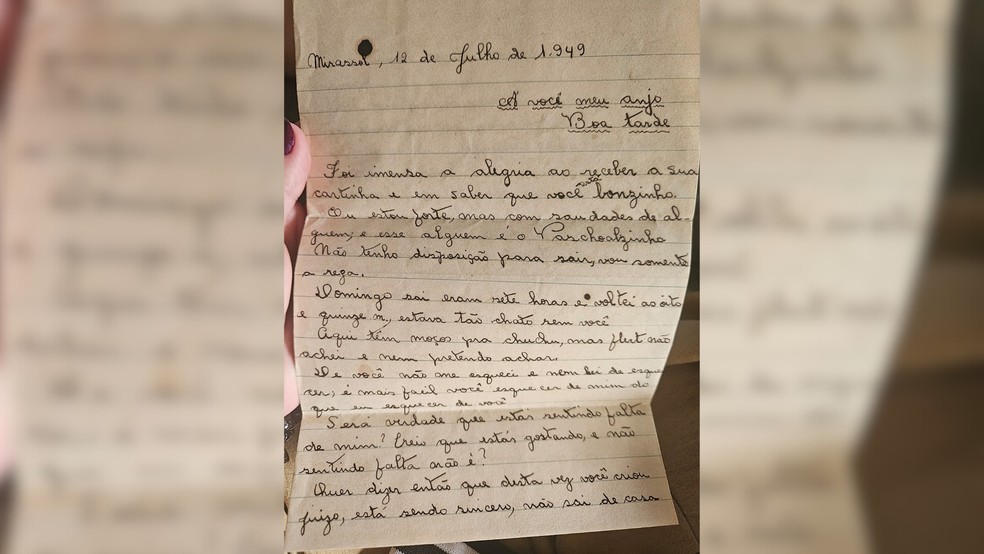 Mirassol, 12 de Julho de 1.949
A você meu anjo
Boa tarde
Foi imensa a alegria ao receber a sua
cartinha e em saber que você está bonzinho.
Eu estou forte, mas com saudades de al-
guem; e esse alguem é o Paschoalzinho
Não tenho disposição para sair, vou somente
a reza.
Domingo sai eram sete horas e voltei as oito
e quinze m, estava tão chato sem você
Aqui têm moços pra chuchu, mas flert não
achei e nem pretendo achar.
De você não me esqueci e nem hei de esque
cer; é mais facil você esquecer de mim do
que eu esquecer de você
Será verdade que estás sentindo falta
de mim? Creio que estás gostando, e não
sentindo falta não é?
Quer dizer então que desta vez você criou
juizo, está sendo sincero, não sai de casa